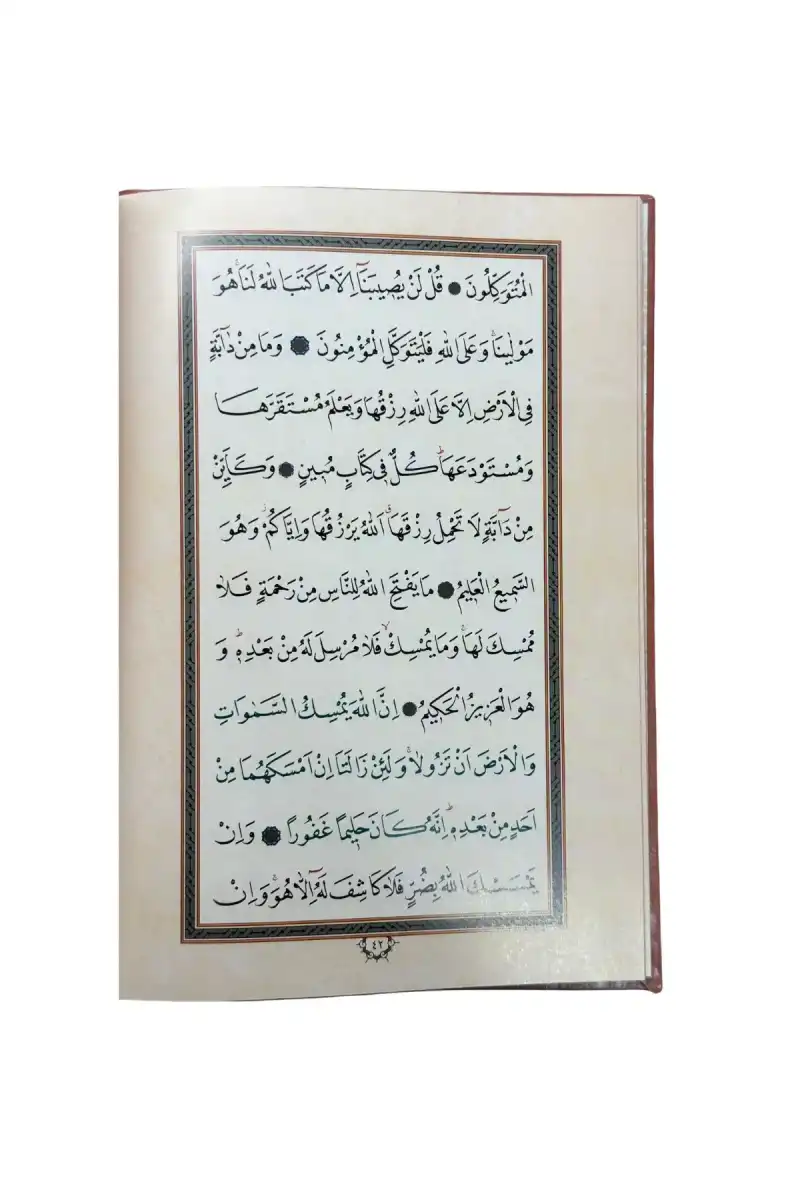 الْمُتَوَكِّلُونَ ● قُلْ لَنْ يُصِيبَنَٓا اِلَّا مَا كَتَبَ اللّٰهُ لَنَاۚ هُوَ
مَوْلٰينَاۚ وَعَلَى اللّٰهِ فَلْيَتَوَكَّلِ الْمُؤْمِنُونَ ● وَمَا مِنْ دَٓابَّةٍ
فِى الْاَرْضِ اِلَّا عَلَى اللّٰهِ رِزْقُهَا وَيَعْلَمُ مُسْتَقَرَّهَا
وَمُسْتَوْدَعَهَاۜ كُلٌّ فٖى كِتَابٍ مُبٖينٍ ● وَكَاَيِّنْ
مِنْ دَٓابَّةٍ لَا تَحْمِلُ رِزْقَهَاۗ اَللّٰهُ يَرْزُقُهَا وَاِيَّاكُمْۘ وَهُوَ
السَّمٖيعُ الْعَلٖيمُ ● مَا يَفْتَحِ اللّٰهُ لِلنَّاسِ مِنْ رَحْمَةٍ فَلَا
مُمْسِكَ لَهَاۚ وَمَا يُمْسِكْۙ فَلَا مُرْسِلَ لَهُ مِنْ بَعْدِهٖۜ وَ
هُوَ الْعَزٖيزُ الْحَكٖيمُ ● اِنَّ اللّٰهَ يُمْسِكُ السَّمٰوَاتِ
وَالْاَرْضَ اَنْ تَزُولَاۚ وَلَئِنْ زَالَتَٓا اِنْ اَمْسَكَهُمَا مِنْ
اَحَدٍ مِنْ بَعْدِهٖۜ اِنَّهُ كَانَ حَلٖيمًا غَفُورًا ● وَاِنْ
يَمْسَسْكَ اللّٰهُ بِضُرٍّ فَلَا كَاشِفَ لَهُٓ اِلَّا هُوَۚ وَاِنْ
٤٢